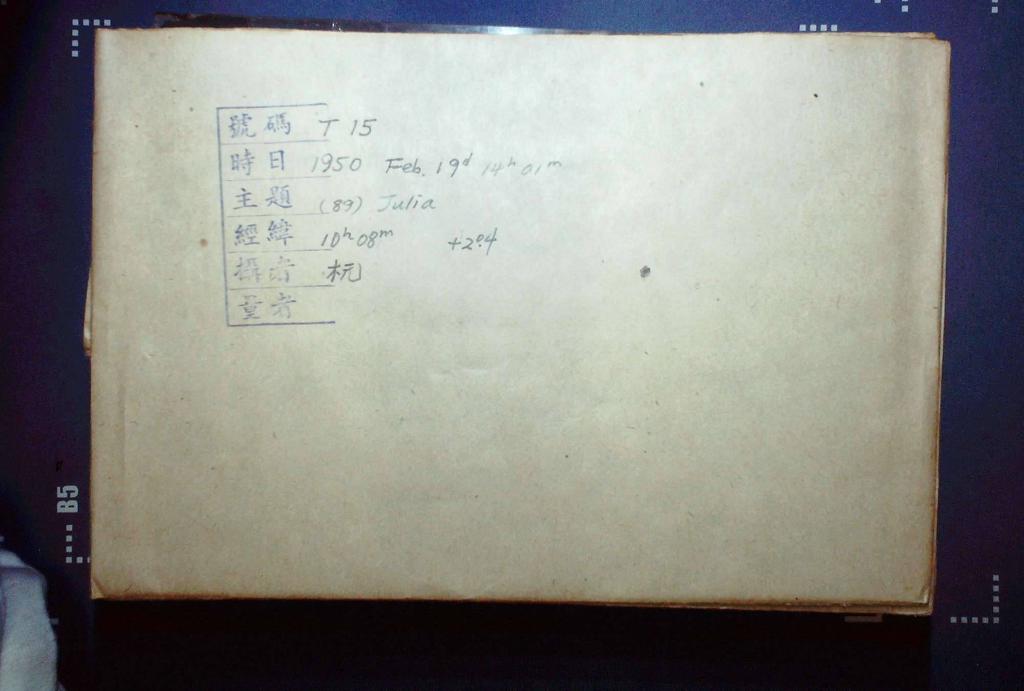 號碼 T 15
時日 1950 Feb. 19ᵈ 14ʰ 01ᵐ
主題 (89) Julia
經緯 10ʰ 08ᵐ +2°.4
攝者 杬
量者
B5